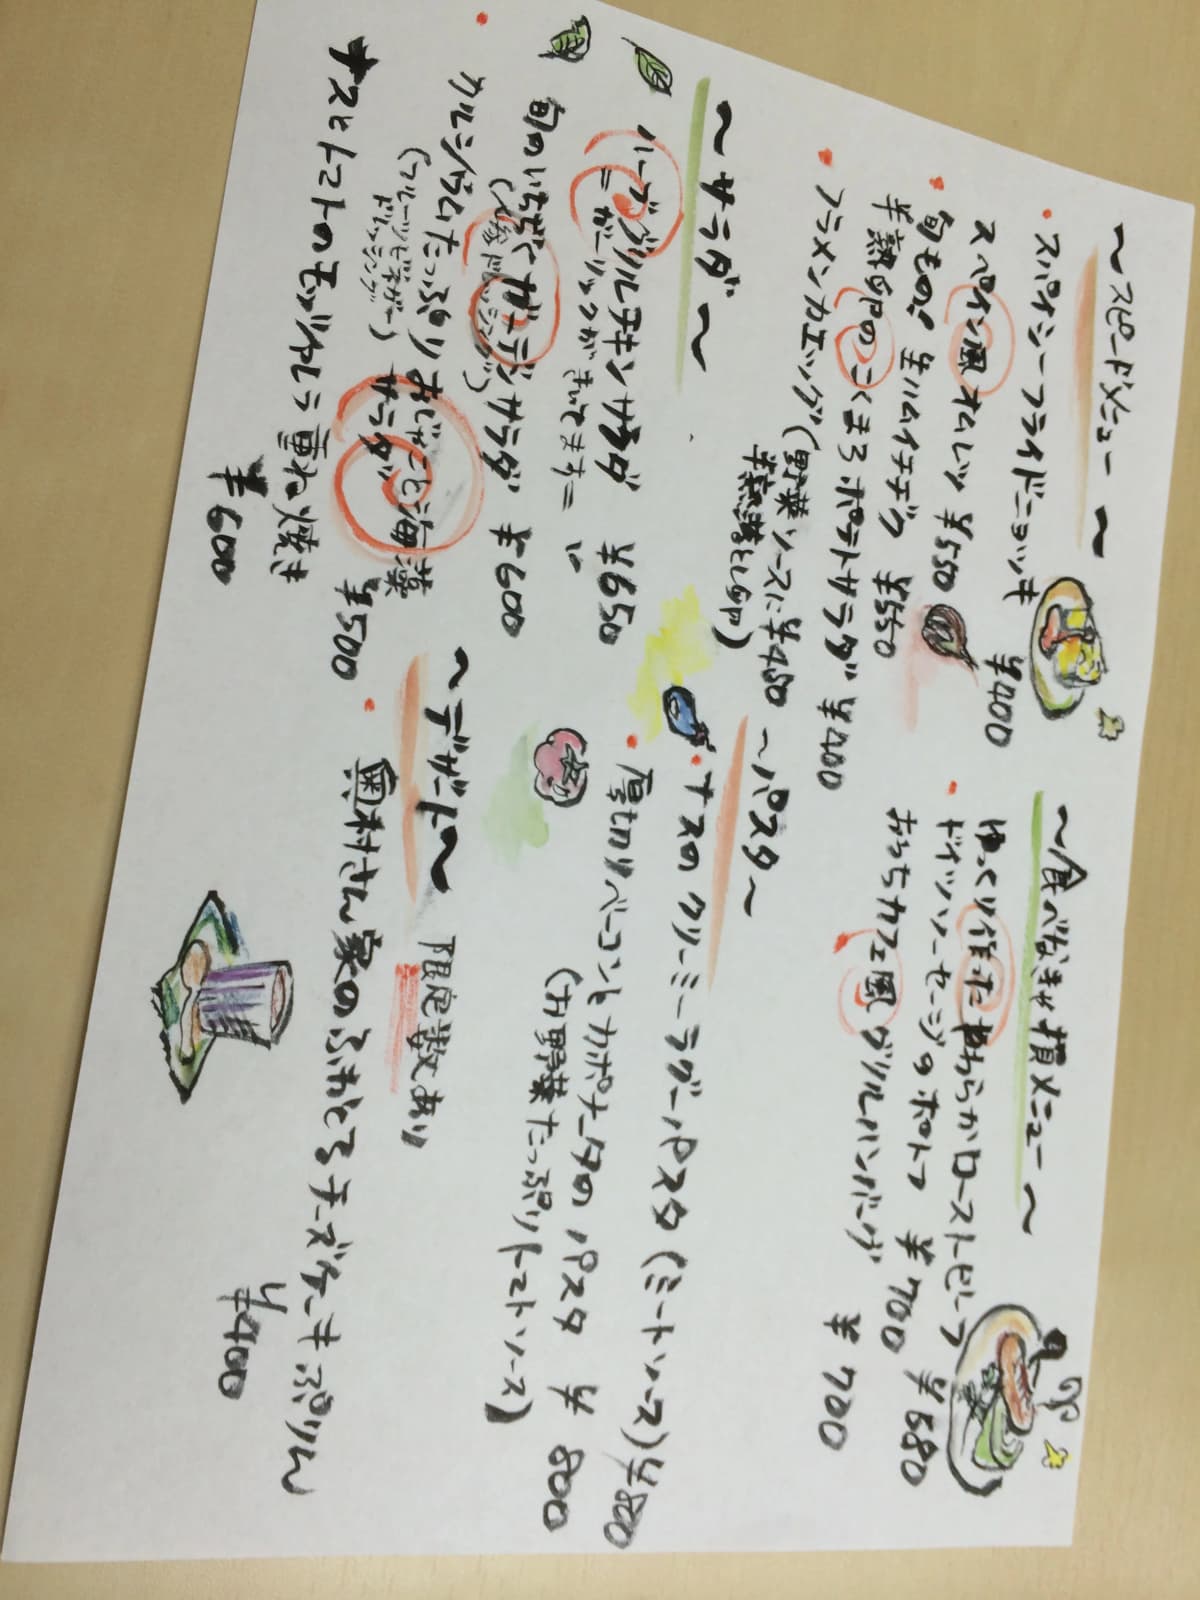 〜スピードメニュー〜
スパイシーフライドニョッキ ¥400
スペイン風オムレツ ¥550
旬もの! 生ハムイチヂク ¥550
半熟卵のこくまろポテトサラダ ¥400
フラメンカエッグ(野菜ソースに半熟落とし卵) ¥450
〜サラダ〜
ハーブグリルチキンサラダ ¥650
=ガーリックがきいてます=
旬のいちぢくガーデンサラダ ¥600
カルシウムたっぷりおじゃこと海藻サラダ ¥500
(フルーツビネガードレッシング)
ナスとトマトのモッツァレラ重ね焼き ¥600
〜食べなきゃ損メニュー〜
ゆっくり仕込んだやわらかローストビーフ ¥580
ドイツソーセージのポトフ ¥700
おうちカフェ風グリルハンバーグ ¥700
〜パスタ〜
ナスのクリーミーラグーパスタ(ミートソース) ¥800
厚切りベーコンとカポナータのパスタ ¥800
(お野菜たっぷりトマトソース)
〜デザート〜 限定数あり
奥村さん家のふわとろチーズケーキぷりん
¥400